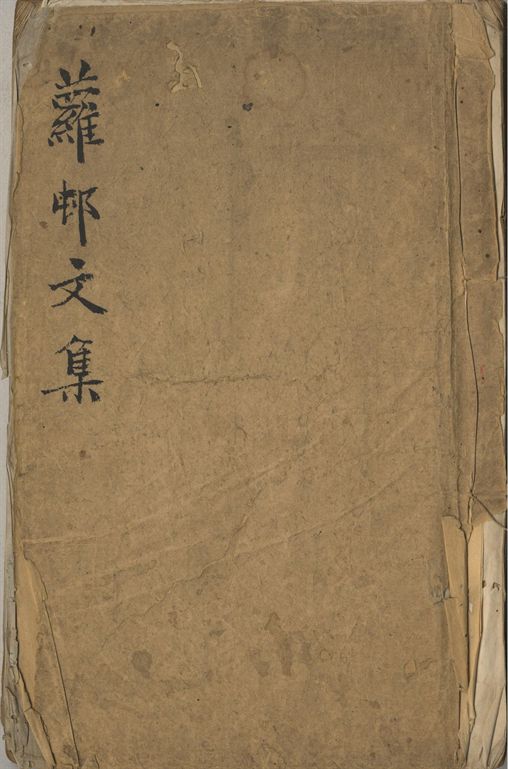 蘿邨文集